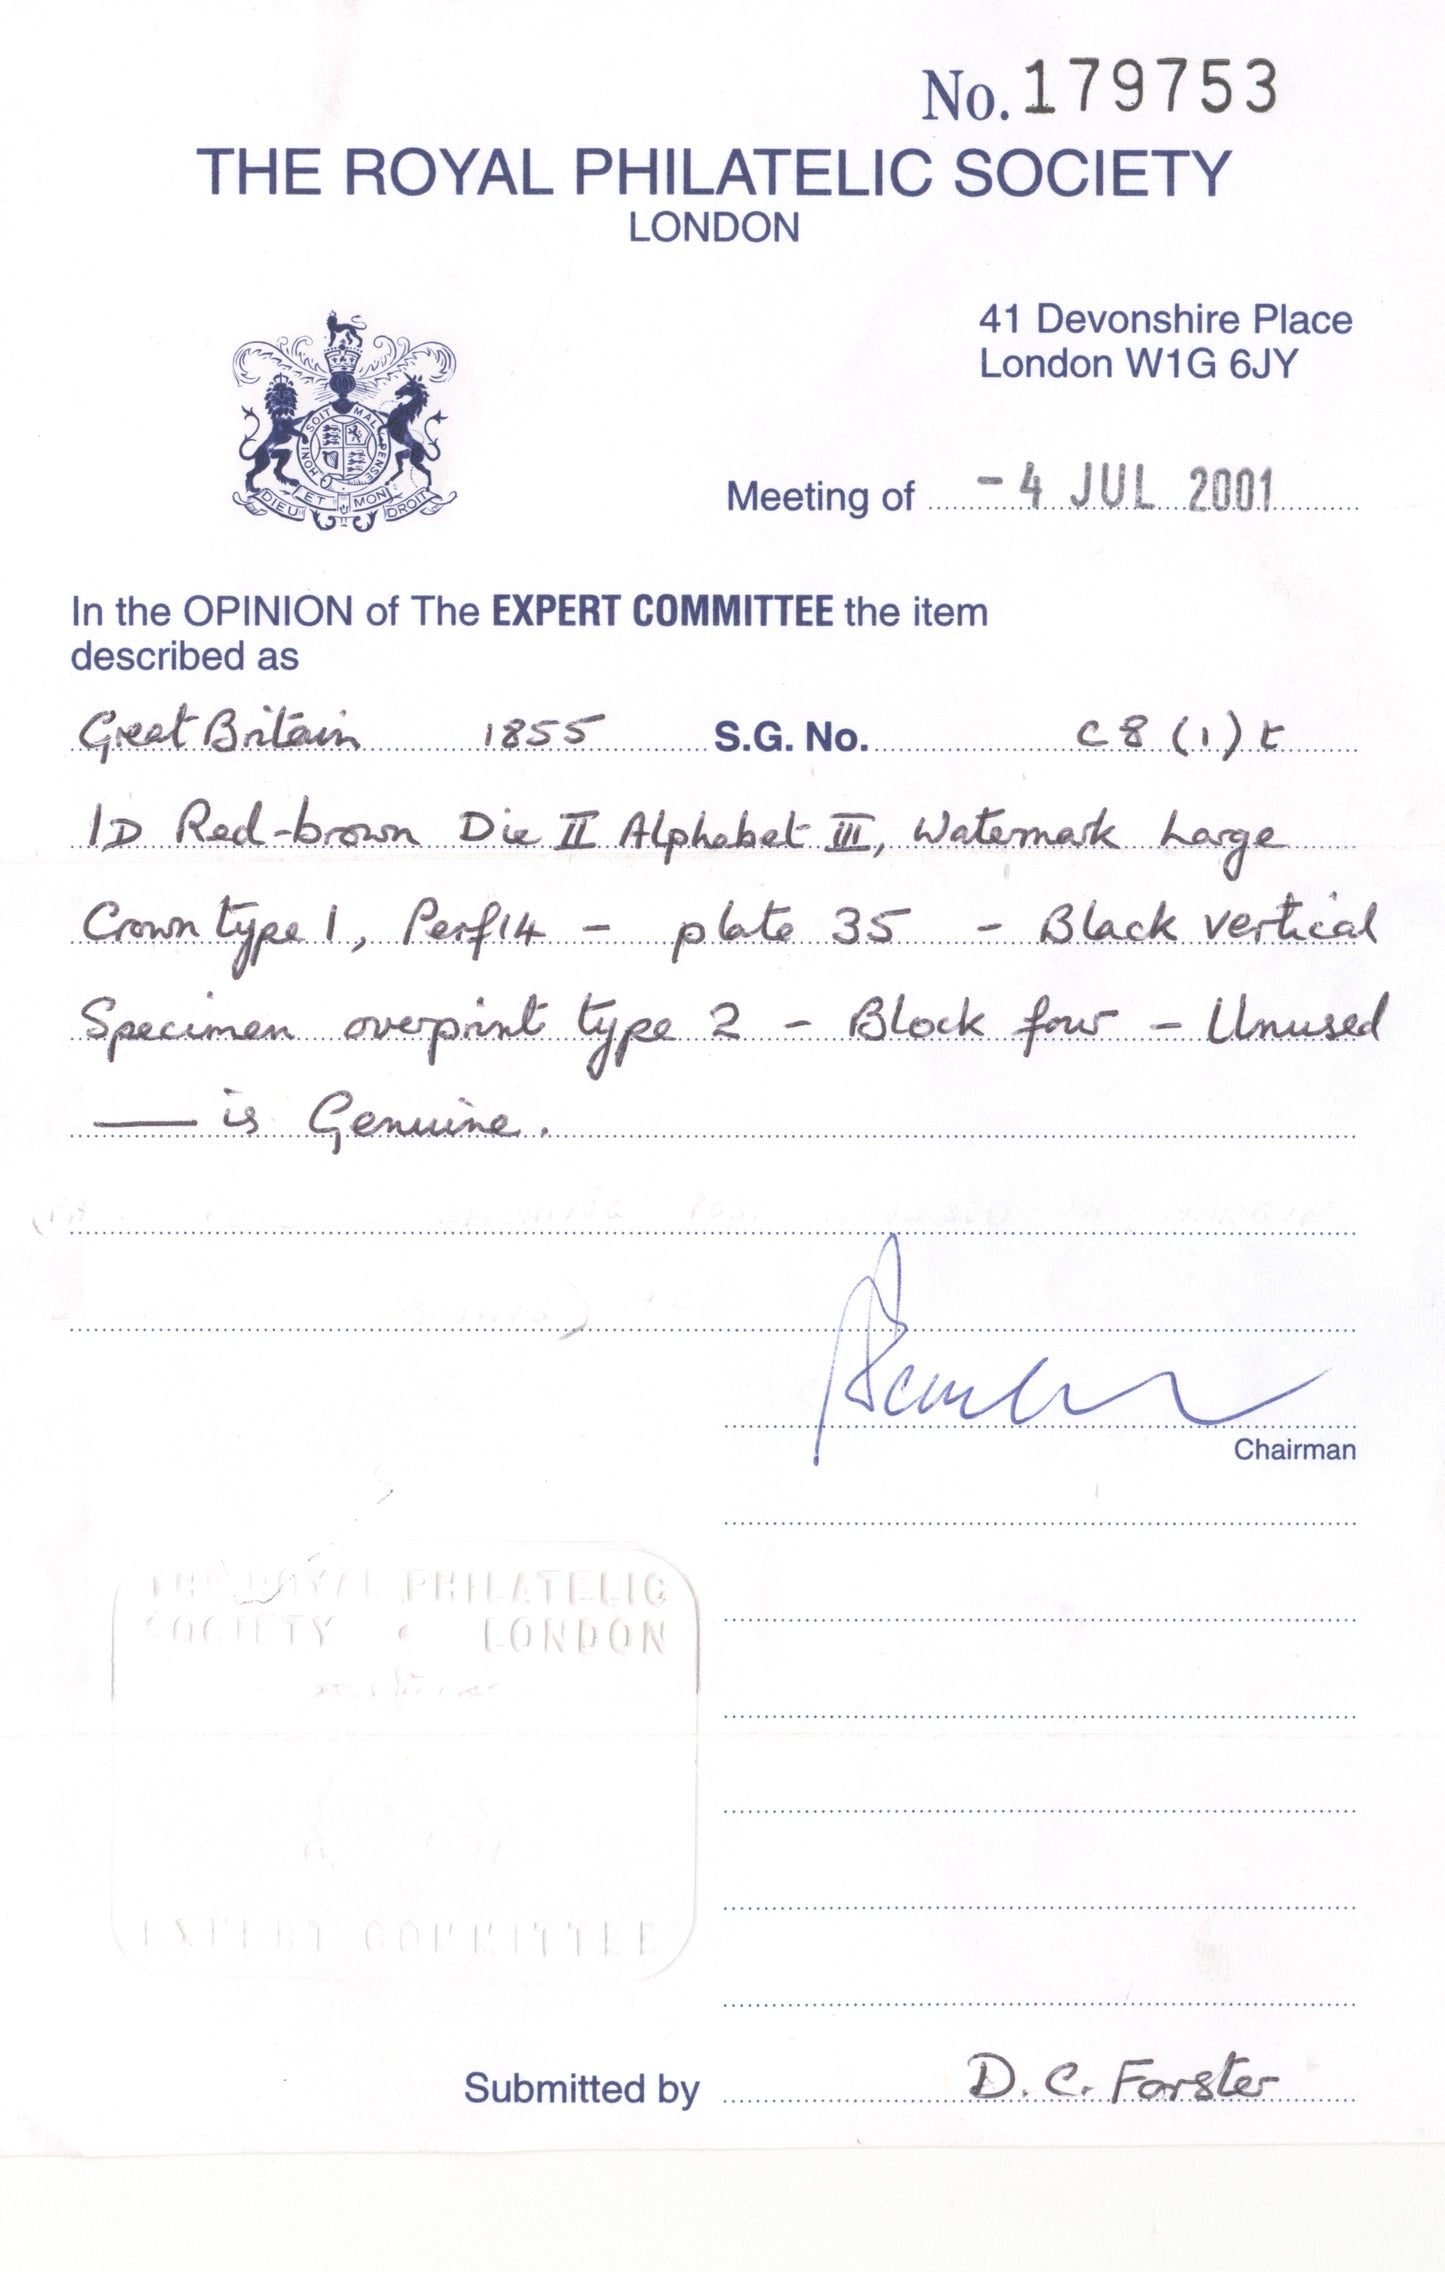 No. 179753
THE ROYAL PHILATELIC SOCIETY
LONDON
41 Devonshire Place
London W1G 6JY
HONI SOIT MAL PENSE
DIEU ET MON DROIT
Meeting of - 4 JUL 2001
In the OPINION of The EXPERT COMMITTEE the item
described as
Great Britain 1855 S.G. No. C8(1)t
1D Red-brown Die II Alphabet III, Watermark Large
Crown type 1, Perf 14 - plate 35 - Black vertical
Specimen overprint type 2 - Block four - Unused
— is Genuine.
Chairman
THE ROYAL PHILATELIC
SOCIETY • LONDON
EXPERT COMMITTEE
Submitted by D. C. Forster